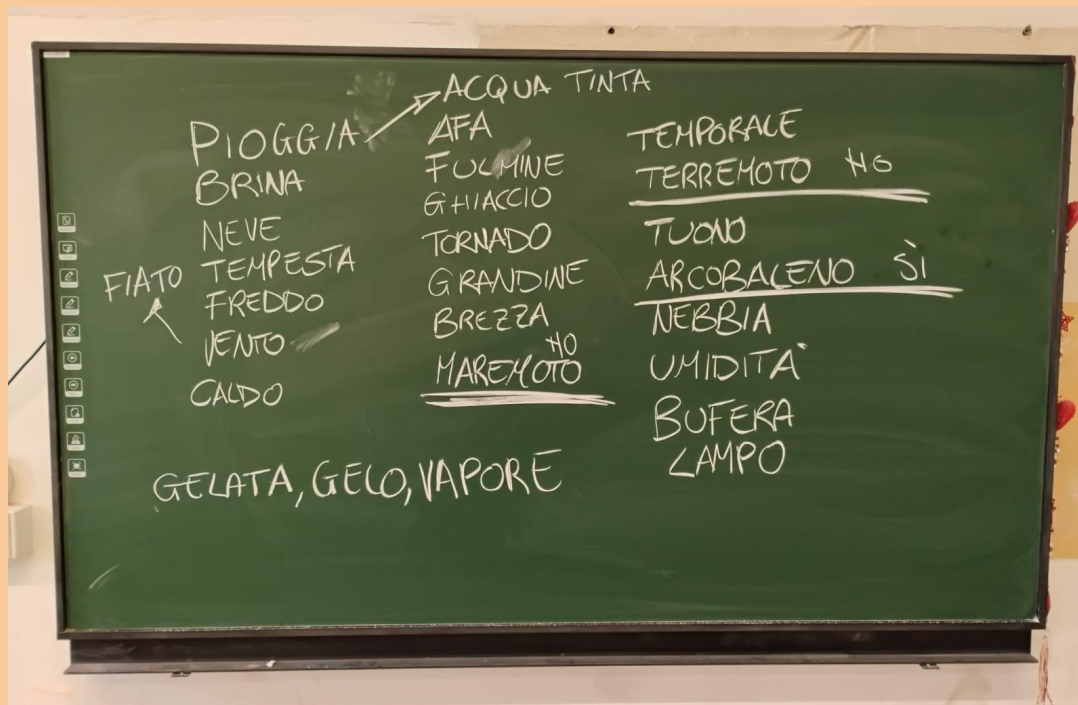 PIOGGIA
BRINA
NEVE
FIATO TEMPESTA
FREDDO
VENTO
CALDO
ACQUA TINTA
AFA
FULMINE
GHIACCIO
TORNADO
GRANDINE
BREZZA
MAREMOTO NO
TEMPORALE
TERREMOTO NO
TUONO
ARCOBALENO SÌ
NEBBIA
UMIDITÀ
BUFERA
LAMPO
GELATA, GELO, VAPORE